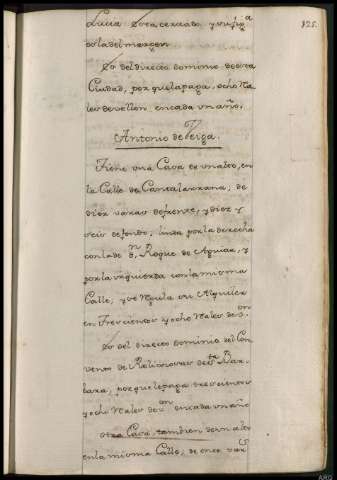 825.
Lucia Otra cercado, y su figª
es la del margen
Es del directo dominio de esta
Ciudad, por que le paga, ocho Rª
les de vellon, en cada un año.
Antonio de Veiga.
Tiene una Casa de un alto, en
la Calle de Cantalarrana, de
diez varas de frente, y diez y
seis de fondo, linda por la derecha
con la de Dn Roque de Aguiar, y
por la izquierda con la misma
Calle; y se regula su Alquiler
en Trescientos y ocho Reales de von
Es del directo dominio del Con
vento de Relixiosas de Sta Bar
bara, por que le paga trescientos
y ocho Reales de von en cada un año
otra Casa, tambien de un alto
en la misma Calle, de once vars